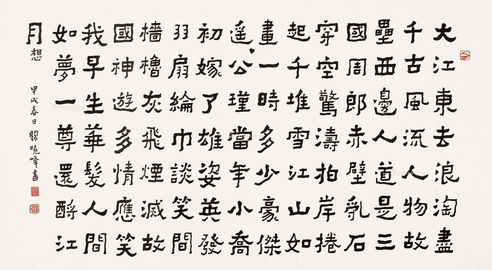 大江東去浪淘盡
千古風流人物故
壘西邊人道是三
國周郎赤壁亂石
穿空驚濤拍岸捲
起千堆雪江山如
畫一時多少豪傑
遙公瑾當年小喬
初嫁了雄姿英發
羽扇綸巾談笑間
檣櫓灰飛煙滅故
國神遊多情應笑
我早生華髮人間
如夢一尊還酹江
月
想
甲戌春日曉峰書